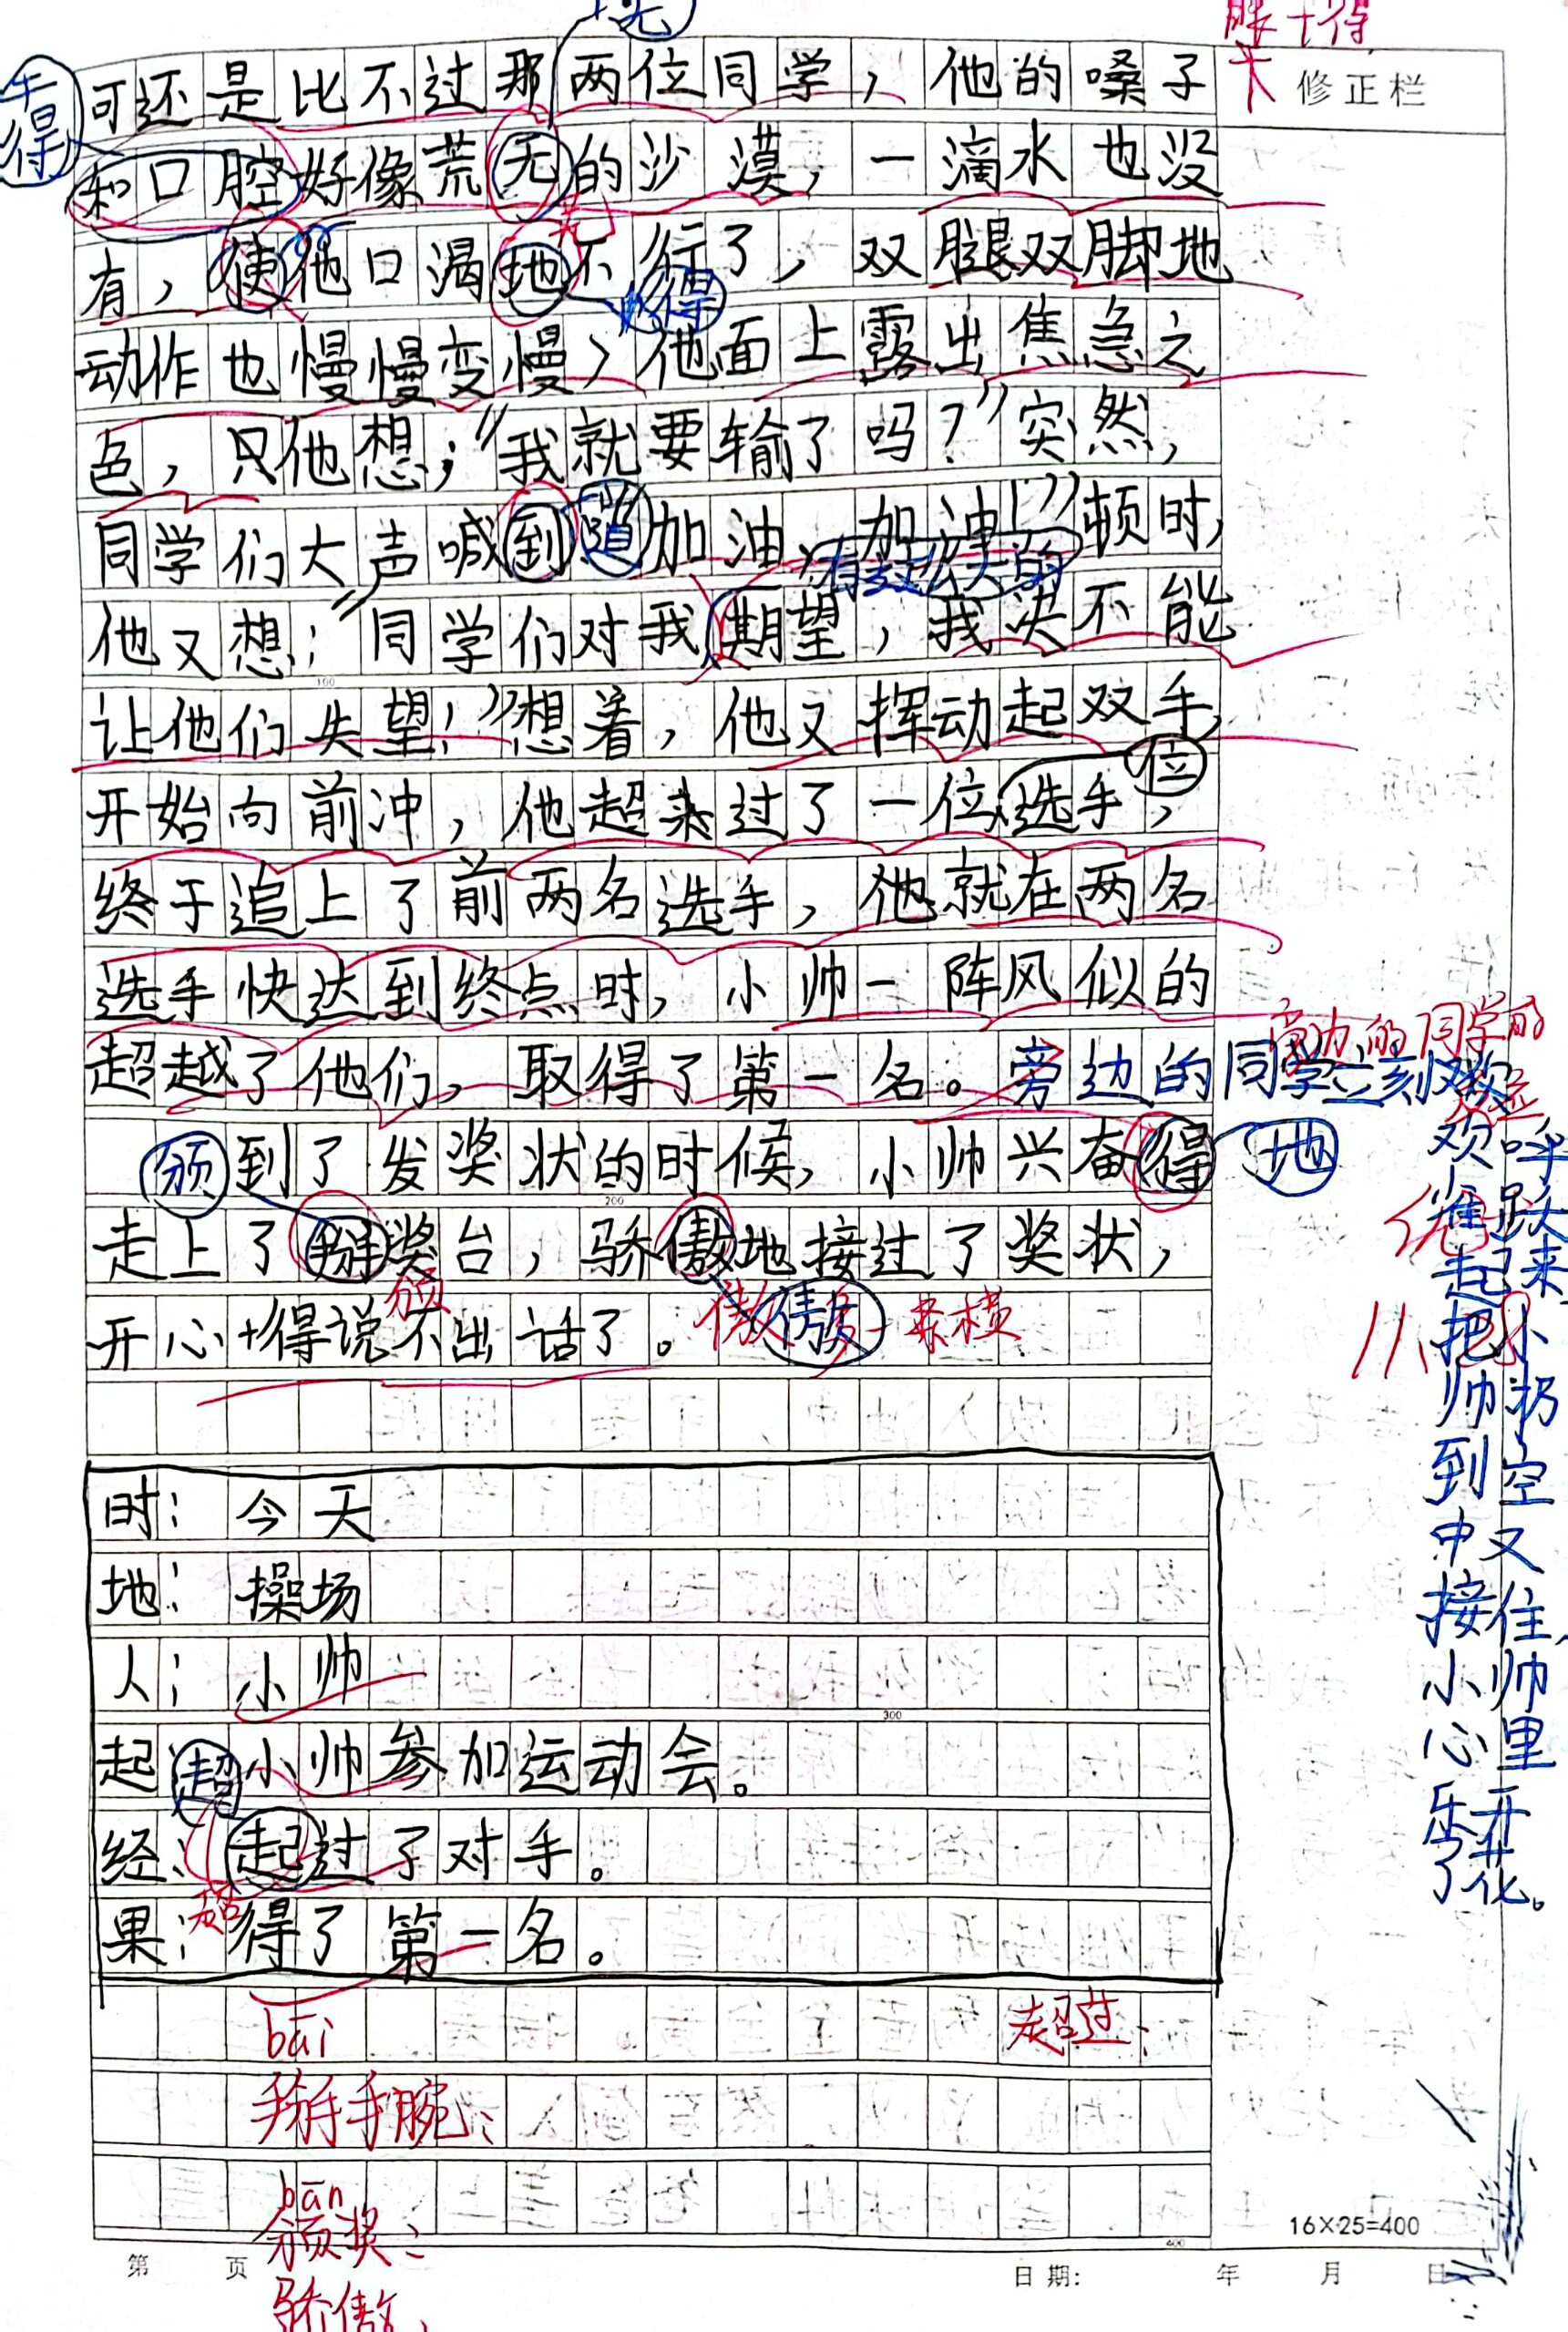 得
可还是比不过那两位同学，他的嗓子
修正栏
和口腔好像荒无的沙漠，一滴水也没
有，使他口渴地不行了，双腿双脚地
得
动作也慢慢变慢，他面上露出焦急之
色，只他想；“我就要输了吗？”突然，
同学们大声喊到道加油、加油！”顿时，
他又想：“同学们对我期望，我决不能
让他们失望！”想着，他又挥动起双手，
位
开始向前冲，他超来过了一位选手，
终于追上了前两名选手，他就在两名
选手快达到终点时，小帅一阵风似的
超越了他们，取得了第一名。旁边的同学立刻欢
欢呼
雀跃
起来
把小
帅扔
到空
中又
接住，
小帅
心里
乐开
了花。
颁到了发奖状的时候，小帅兴奋得 地
走上了掰奖台，骄傲地接过了奖状，
颁
开心+得说不出话了。
傲
时：今天
地：操场
人：小帅
起 超 小帅参加运动会。
经：起过了对手。
超
果：得了第一名。
bāi
超过：
掰手腕：
bān
颁奖：
骄傲：
16×25=400
第 页
日期： 年 月 日
100
200
300
400